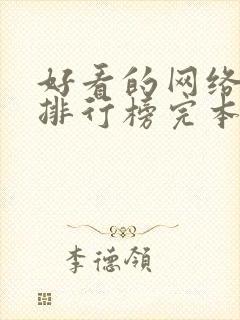 好看的网络
排行榜完本
李德领